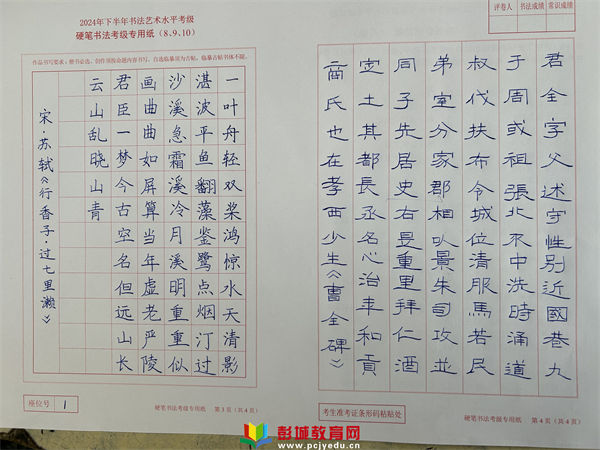 2024年下半年书法艺术水平考级
硬笔书法考级专用纸（8、9、10）
一叶舟轻双桨鸿惊水天清影
湛波平鱼翻藻鉴鹭点烟汀过
沙溪急霜溪冷月溪明重重似
画曲曲如屏算当年虚老严陵
君臣一梦今古空名但远山长
云山乱晓山青
宋·苏轼《行香子·过七里濑》
座位号 1
硬笔书法考级专用纸 第3页（共4页）
评卷人 书法成绩 常识成绩
君全字父述守性别近國巷九
于周或祖張北不中洗時涌道
叔代扶布令城位清服馬若民
弟室分家郡相以景朱司攻並
同子先居史右是重里拜仁酒
定土其都長丞名心治車和貢
商氏也在孝西少生《曹全碑》
考生准考证条形码粘贴处
硬笔书法考级专用纸 第4页（共4页）
彭城教育网
www.pcjyedu.cn